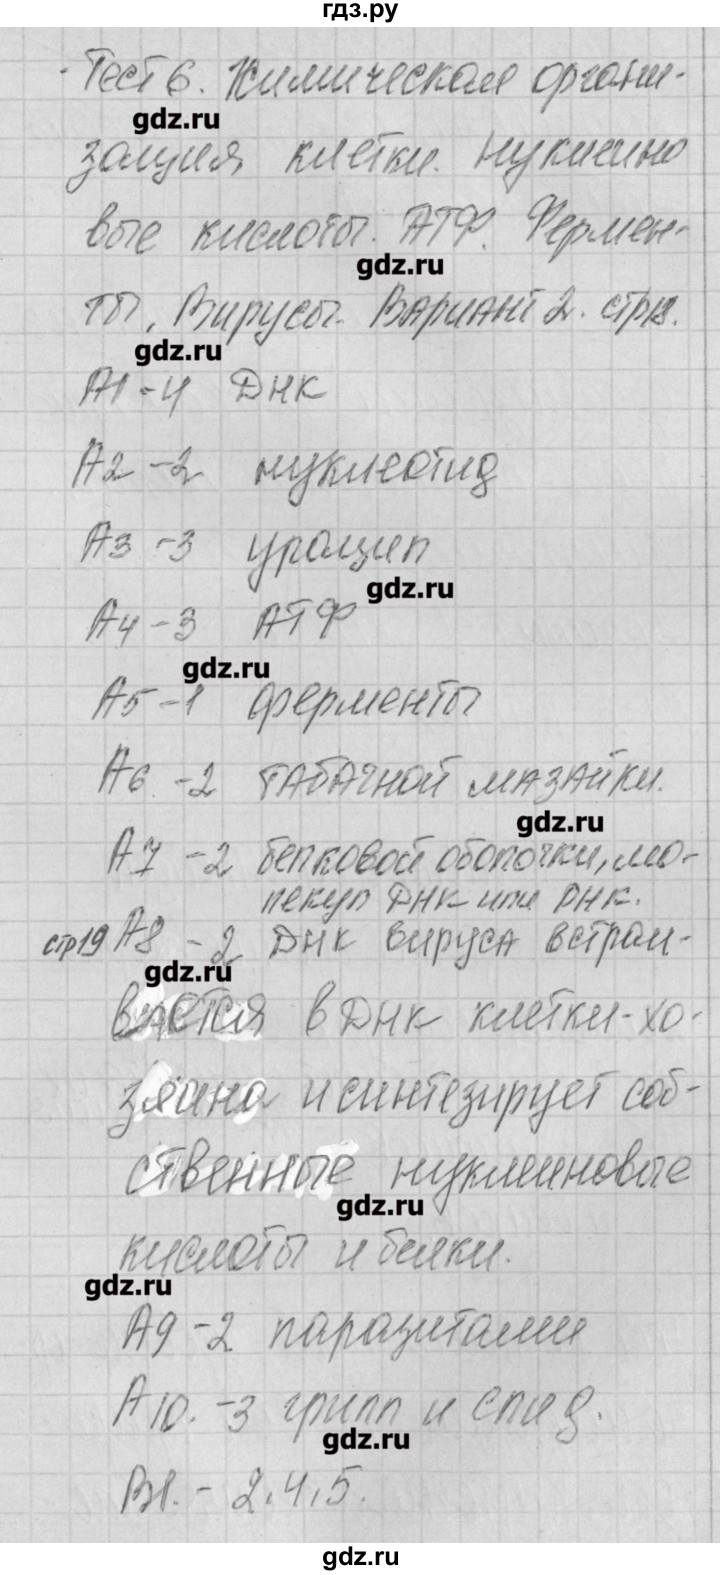 гдз.ру
Тест 6. Химическая органи-
gdz.ru
зация клетки. Нуклеино
вые кислоты. АТФ. Фермен-
gdz.ru
ты. Вирусы. Вариант 2. стр18.
gdz.ru
А1 - 4 ДНК
А2 - 2 нуклеотид
А3 - 3 урацил
gdz.ru
А4 - 3 АТФ
gdz.ru
А5 - 1 ферменты
А6 - 2 табачной мазайки.
gdz.ru
А7 - 2 белковой оболочки, мо-
лекул ДНК или РНК.
стр19 А8 - 2 ДНК вируса встраи-
gdz.ru
вается в ДНК клетки-хо-
зяина и синтезирует соб-
ственные нуклеиновые
gdz.ru
кислоты и белки.
gdz.ru
А9 - 2 паразитами
А10. - 3 грипп и спид.
gdz.ru
В1. - 2,4,5.
gdz.ru